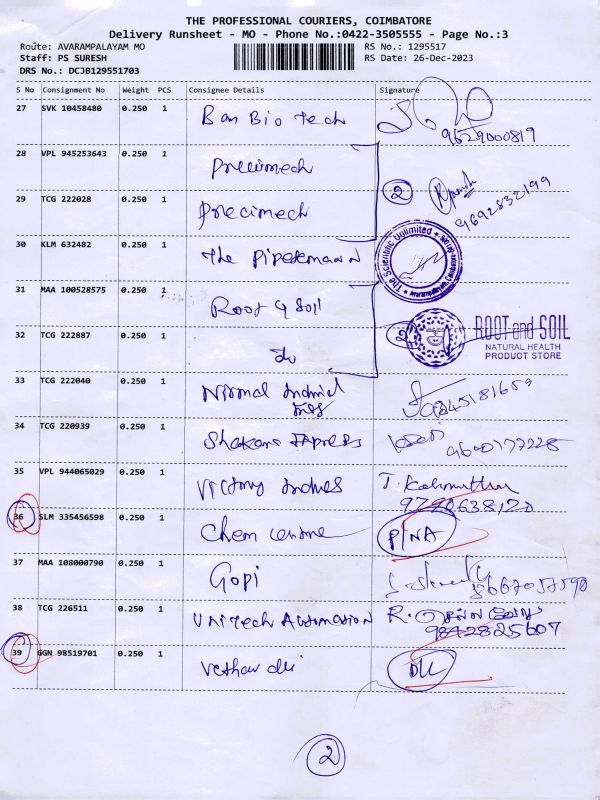 THE PROFESSIONAL COURIERS, COIMBATORE
Delivery Runsheet - MO - Phone No.:0422-3505555 - Page No.:3
Route: AVARAMPALAYAM MO RS No.: 1295517
Staff: PS SURESH RS Date: 26-Dec-2023
DRS No.: DCJB129551703
S No Consignment No Weight PCS Consignee Details Signature
27 SVK 10458480 0.250 1 Ban Bio tech
9629000819
28 VPL 945253643 0.250 1 Precimech
2
29 TCG 222028 0.250 1 Precimech
9692832199
30 KLM 632482 0.250 1 The
The Scientific Unlimited
31 MAA 100528575 0.250 1 Root & Soil
32 TCG 222887 0.250 1 do
2 ROOT and SOIL
NATURAL HEALTH
PRODUCT STORE
33 TCG 222040 0.250 1 Nirmal
34 TCG 220939 0.250 1 Express
35 VPL 944065029 0.250 1 Victory
36 SLM 335456598 0.250 1 Chem
P/NA
37 MAA 108000790 0.250 1 Gopi
8667057590
38 TCG 226511 0.250 1 Unitech Automation R.
9842825607
39 GGN 98519701 0.250 1
DLL
2